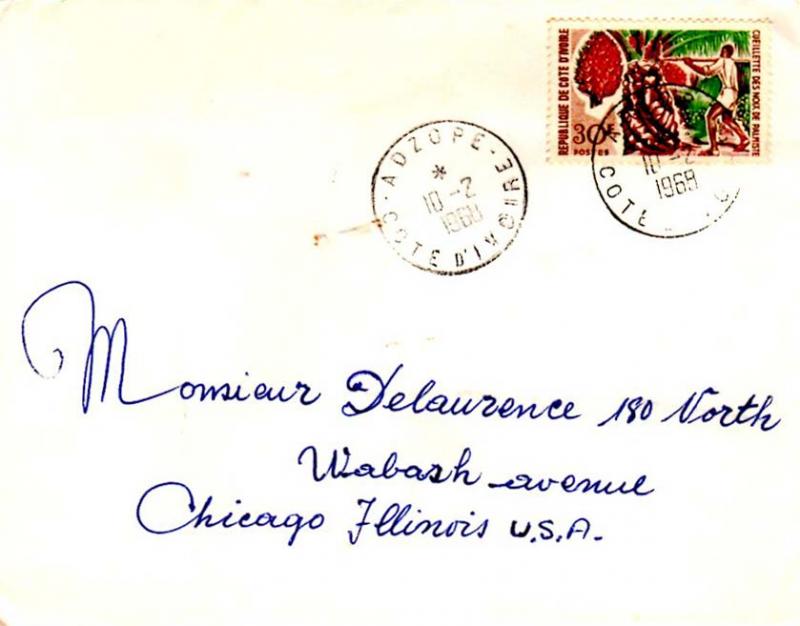 REPUBLIQUE DE COTE D'IVOIRE
30F
POSTES
CUEILLETTE DES NOIX DE PALMISTE
ADZOPE
*
10-2
1968
COTE D'IVOIRE
10-2
1968
COTE
Monsieur Delaurence 180 North
Wabash avenue
Chicago Illinois U.S.A.